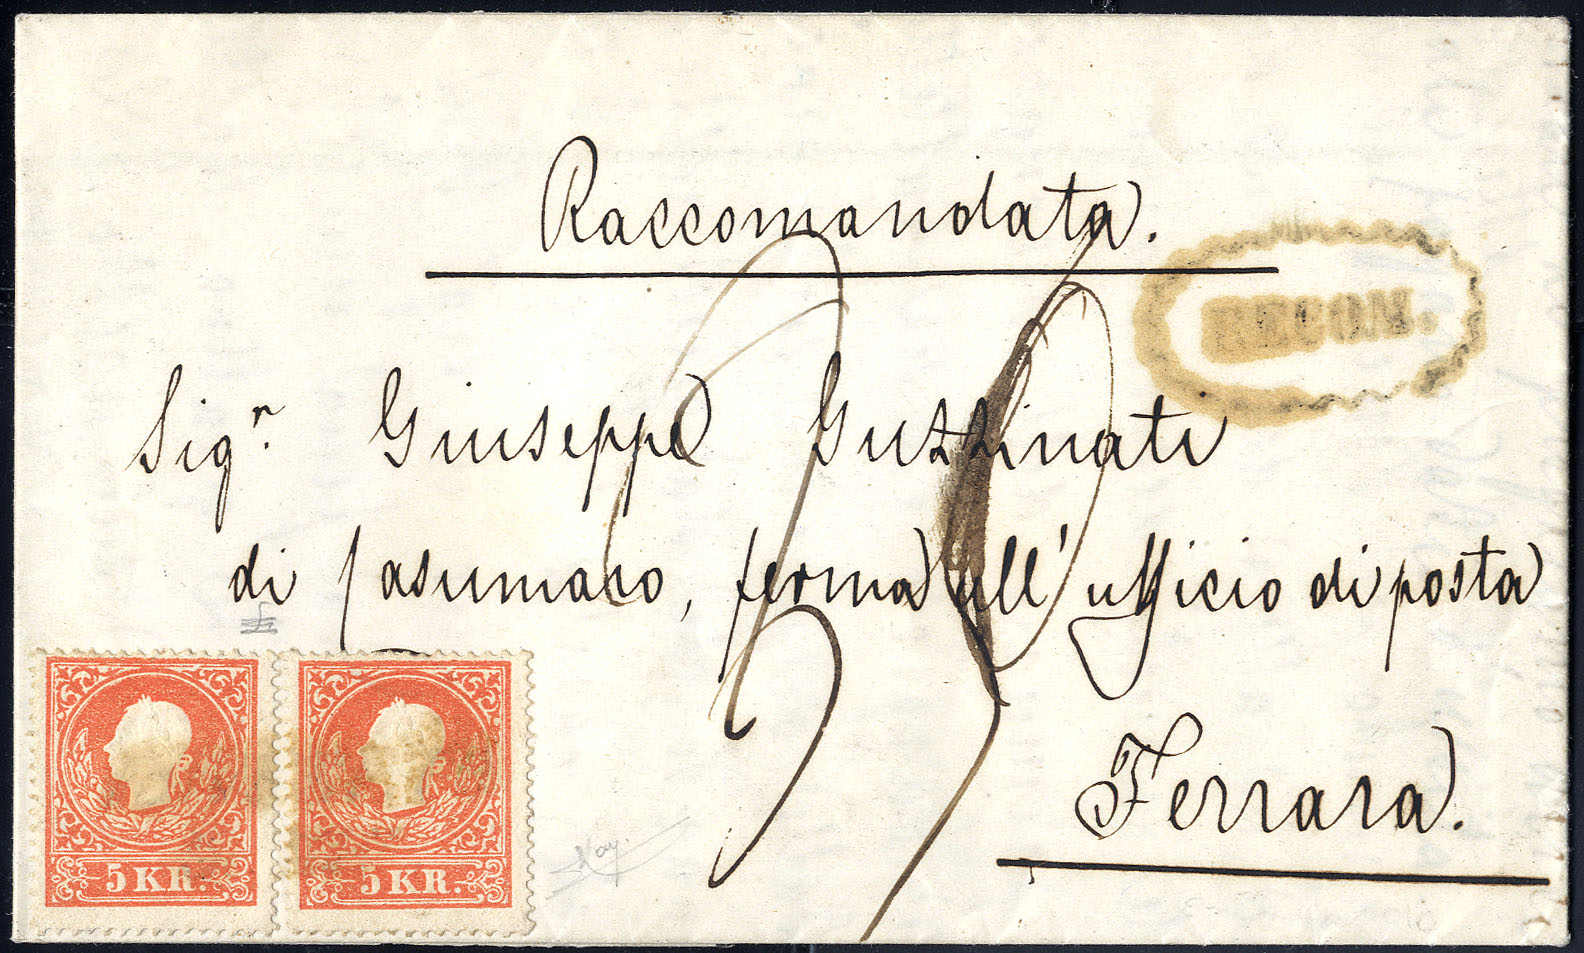 Raccomandata.
RECOM.
Sigr. Giuseppe Guzzinati
di Casumaro, ferma all' ufficio di posta
Ferrara.
5 KR. 5 KR.